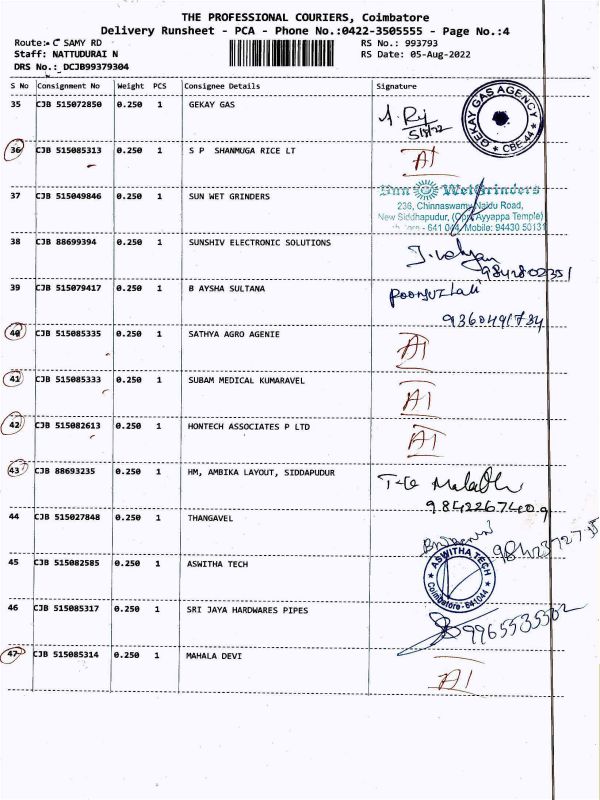 THE PROFESSIONAL COURIERS, Coimbatore
Delivery Runsheet - PCA - Phone No.:0422-3505555 - Page No.:4
Route:- C SAMY RD
RS No.: 993793
Staff: NATTUDURAI N
RS Date: 05-Aug-2022
DRS No.: DCJB99379304
S No Consignment No Weight PCS Consignee Details Signature
35 CJB 515072850 0.250 1 GEKAY GAS
5/8/22
GEKAY GAS AGENCY
CBE-44
36 CJB 515085313 0.250 1 S P SHANMUGA RICE LT A1
37 CJB 515049846 0.250 1 SUN WET GRINDERS
Sun WetGrinders
236, Chinnaswamy Naidu Road,
New Siddhapudur, (Opp. Ayyappa Temple)
- 641 044, Mobile: 94430 50131
38 CJB 88699394 0.250 1 SUNSHIV ELECTRONIC SOLUTIONS
9842802351
39 CJB 515079417 0.250 1 B AYSHA SULTANA
9360491784
40 CJB 515085335 0.250 1 SATHYA AGRO AGENIE A1
41 CJB 515085333 0.250 1 SUBAM MEDICAL KUMARAVEL A1
42 CJB 515082613 0.250 1 HONTECH ASSOCIATES P LTD A1
43 CJB 88693235 0.250 1 HM, AMBIKA LAYOUT, SIDDAPUDUR
9842267409
44 CJB 515027848 0.250 1 THANGAVEL
45 CJB 515082585 0.250 1 ASWITHA TECH
ASWITHA TECH
Coimbatore - 641044
46 CJB 515085317 0.250 1 SRI JAYA HARDWARES PIPES
9965535302
47 CJB 515085314 0.250 1 MAHALA DEVI A1